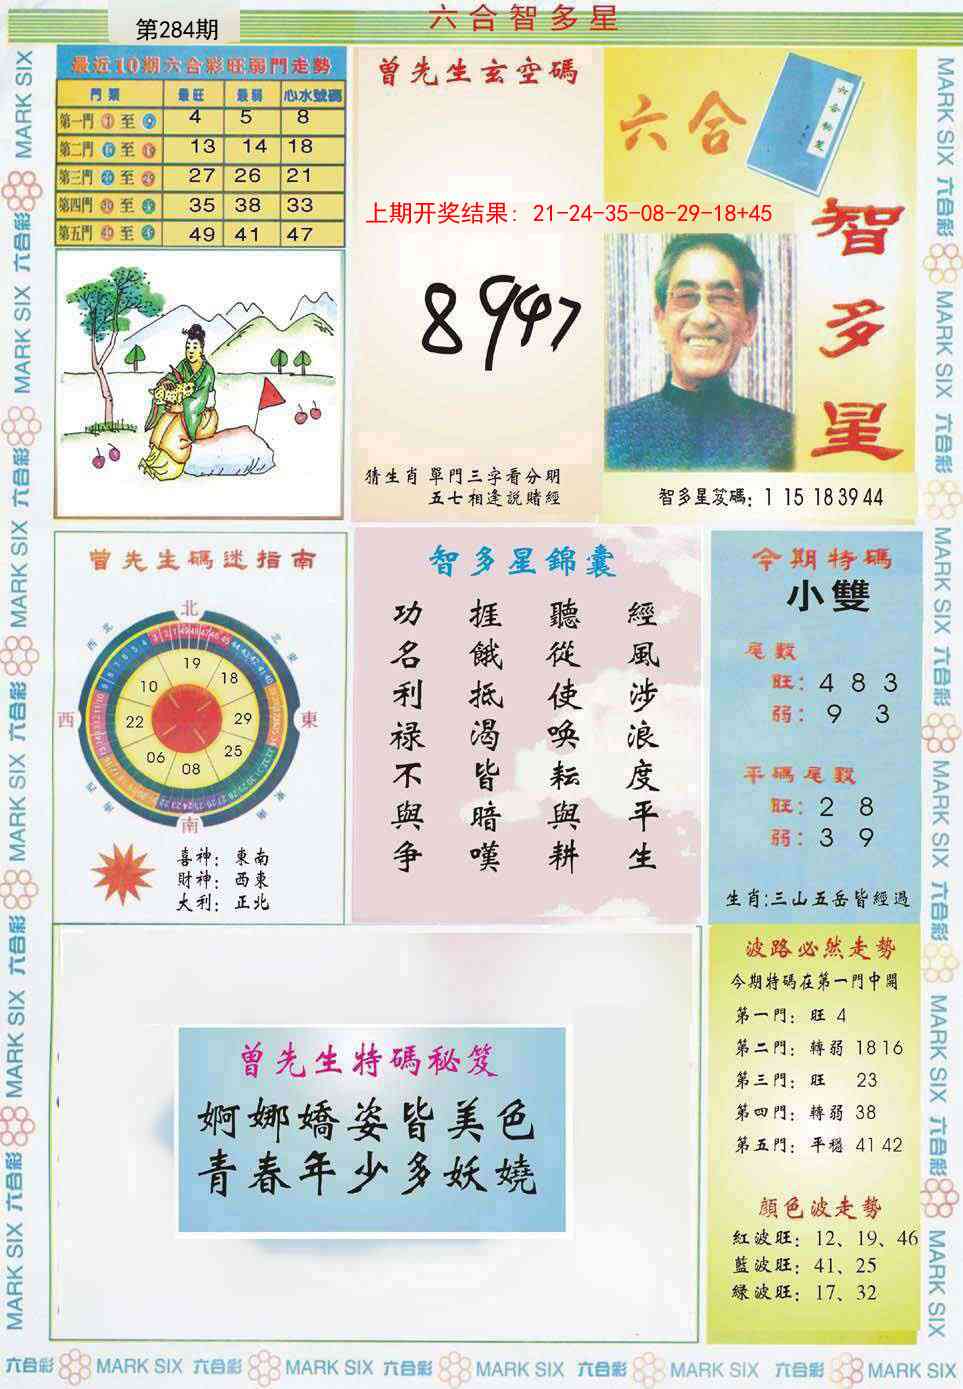 第284期
六合智多星
最近10期六合彩旺弱門走勢
門類 最旺 最弱 心水號碼
第一門 至 4 5 8
第二門 至 13 14 18
第三門 至 27 26 21
第四門 至 35 38 33
第五門 至 49 41 47
曾先生玄空碼
上期开奖结果: 21-24-35-08-29-18+45
8947
猜生肖 單門三字看分明
五七相逢說賭經
六合
智多星
智多星笈碼: 1 15 18 39 44
曾先生碼迷指南
北
西北
東
南
西
19
18
29
25
08
06
22
10
喜神: 東南
財神: 西東
大利: 正北
智多星錦囊
經風涉浪度平生
聽從使喚耘與耕
捱餓抵渴皆暗嘆
功名利禄不與争
今期特碼
小雙
尾數
旺: 4 8 3
弱: 9 3
平碼尾數
旺: 2 8
弱: 3 9
生肖:三山五岳皆經過
曾先生特碼秘笈
婀娜嬌姿皆美色
青春年少多妖嬈
波路必然走勢
今期特碼在第一門中開
第一門: 旺 4
第二門: 轉弱 18 16
第三門: 旺 23
第四門: 轉弱 38
第五門: 平穩 41 42
顔色波走勢
紅波旺: 12、19、46
藍波旺: 41、25
緑波旺: 17、32
六合彩 MARK SIX 六合彩 MARK SIX 六合彩 MARK SIX 六合彩 MARK SIX 六合彩 MARK SIX